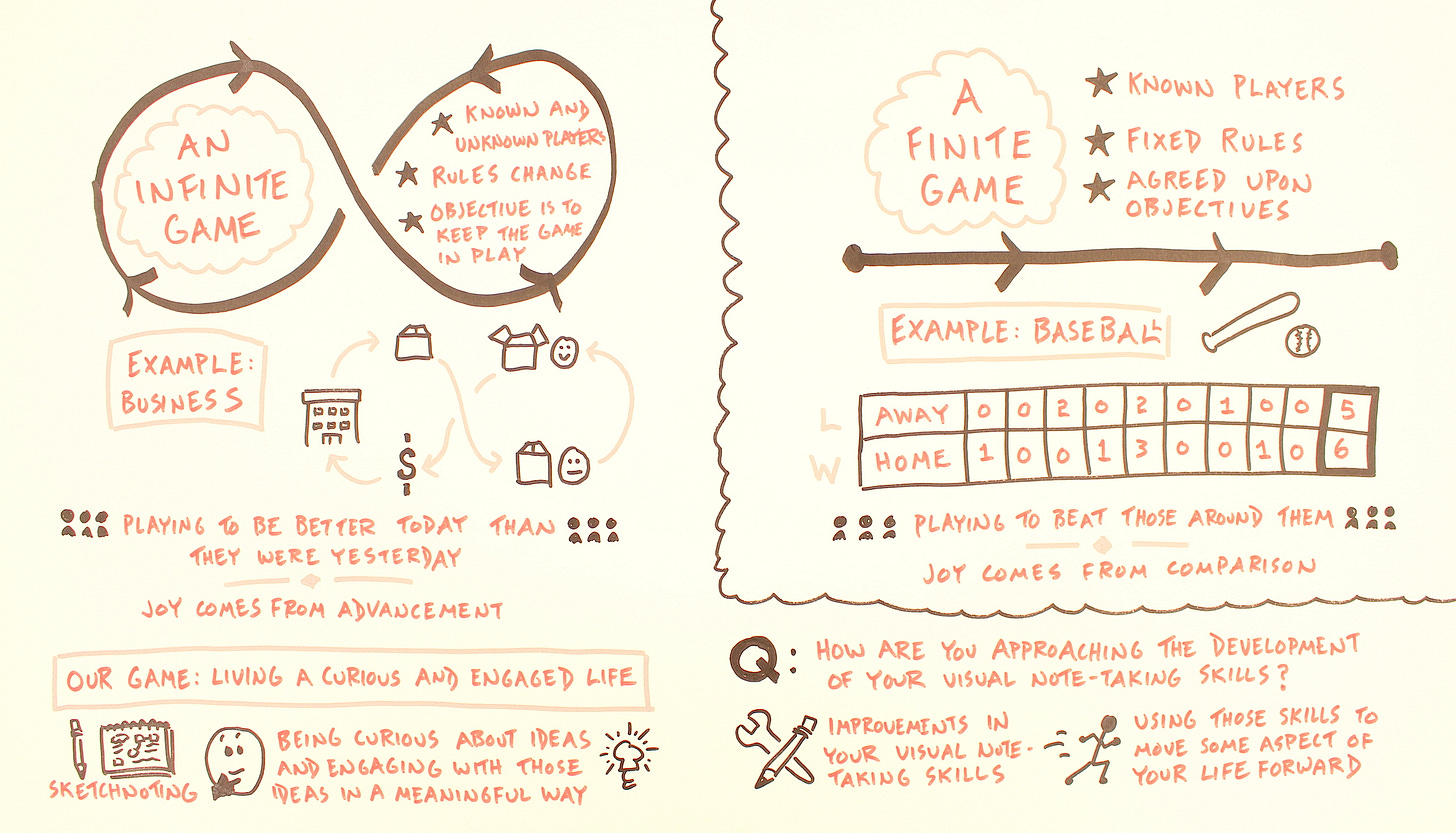 AN
INFINITE
GAME
★ KNOWN AND
UNKNOWN PLAYERS
★ RULES CHANGE
★ OBJECTIVE IS TO
KEEP THE GAME
IN PLAY
EXAMPLE:
BUSINESS
$
PLAYING TO BE BETTER TODAY THAN
THEY WERE YESTERDAY
JOY COMES FROM ADVANCEMENT
A
FINITE
GAME
★ KNOWN PLAYERS
★ FIXED RULES
★ AGREED UPON
OBJECTIVES
EXAMPLE: BASEBALL
L AWAY 0 0 2 0 2 0 1 0 0 5
W HOME 1 0 0 1 3 0 0 1 0 6
PLAYING TO BEAT THOSE AROUND THEM
JOY COMES FROM COMPARISON
OUR GAME: LIVING A CURIOUS AND ENGAGED LIFE
SKETCHNOTING
BEING CURIOUS ABOUT IDEAS
AND ENGAGING WITH THOSE
IDEAS IN A MEANINGFUL WAY
Q: HOW ARE YOU APPROACHING THE DEVELOPMENT
OF YOUR VISUAL NOTE-TAKING SKILLS?
IMPROVEMENTS IN
YOUR VISUAL NOTE-
TAKING SKILLS
USING THOSE SKILLS TO
MOVE SOME ASPECT OF
YOUR LIFE FORWARD